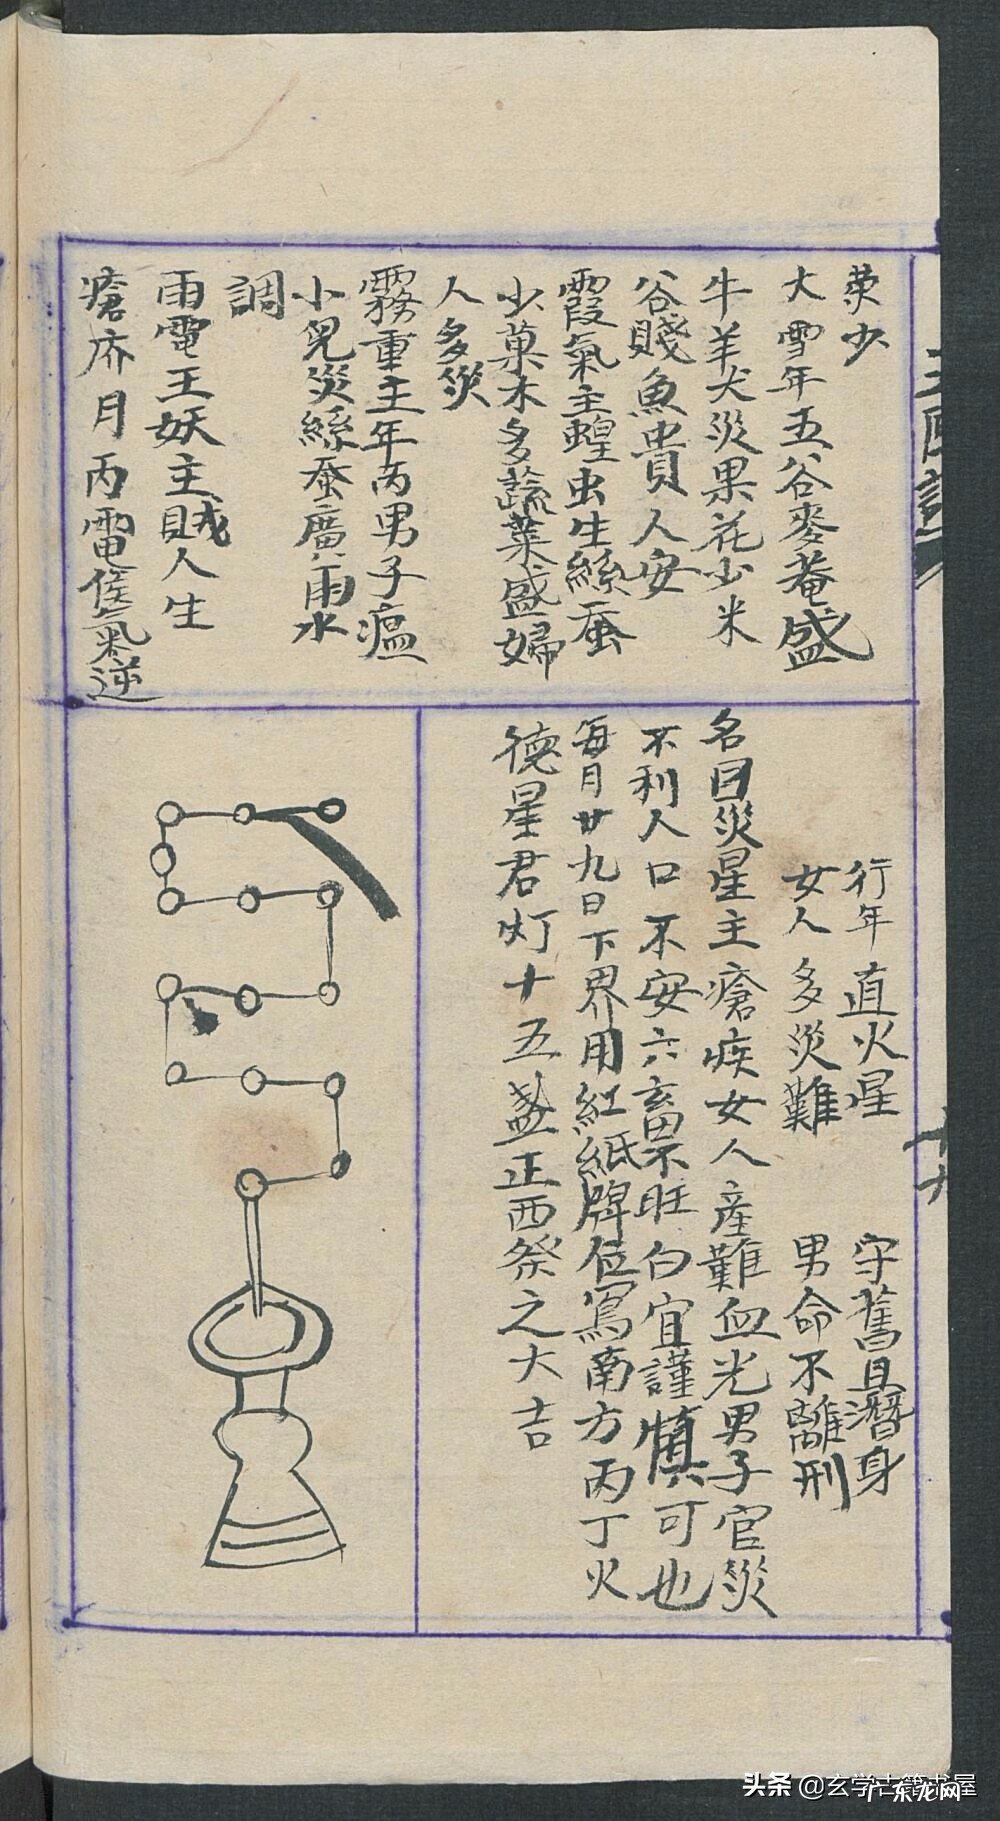 菜少
大雪年五谷麥菴盛
牛羊犬災果花少米
谷賤魚貴人安
霞氣主蝗虫生絲蚕
少菓木多蔬菜盛婦
人多災
霧重主年丙男子瘟
小児災絲蚕廣雨水
調
雨電王妖主賊人生
瘡疥月丙電侯氣逆
行年直火星 守舊且潛身
女人多災難 男命不離刑
名曰災星主瘡疾女人産難血光男子官災
不利人口不安六畜不旺白宜謹慎可也
每月廿九日下界用紅紙牌位寫南方丙丁火
德星君灯十五盞正西祭之大吉
十六
头条 @玄学古籍书屋
广东龙网